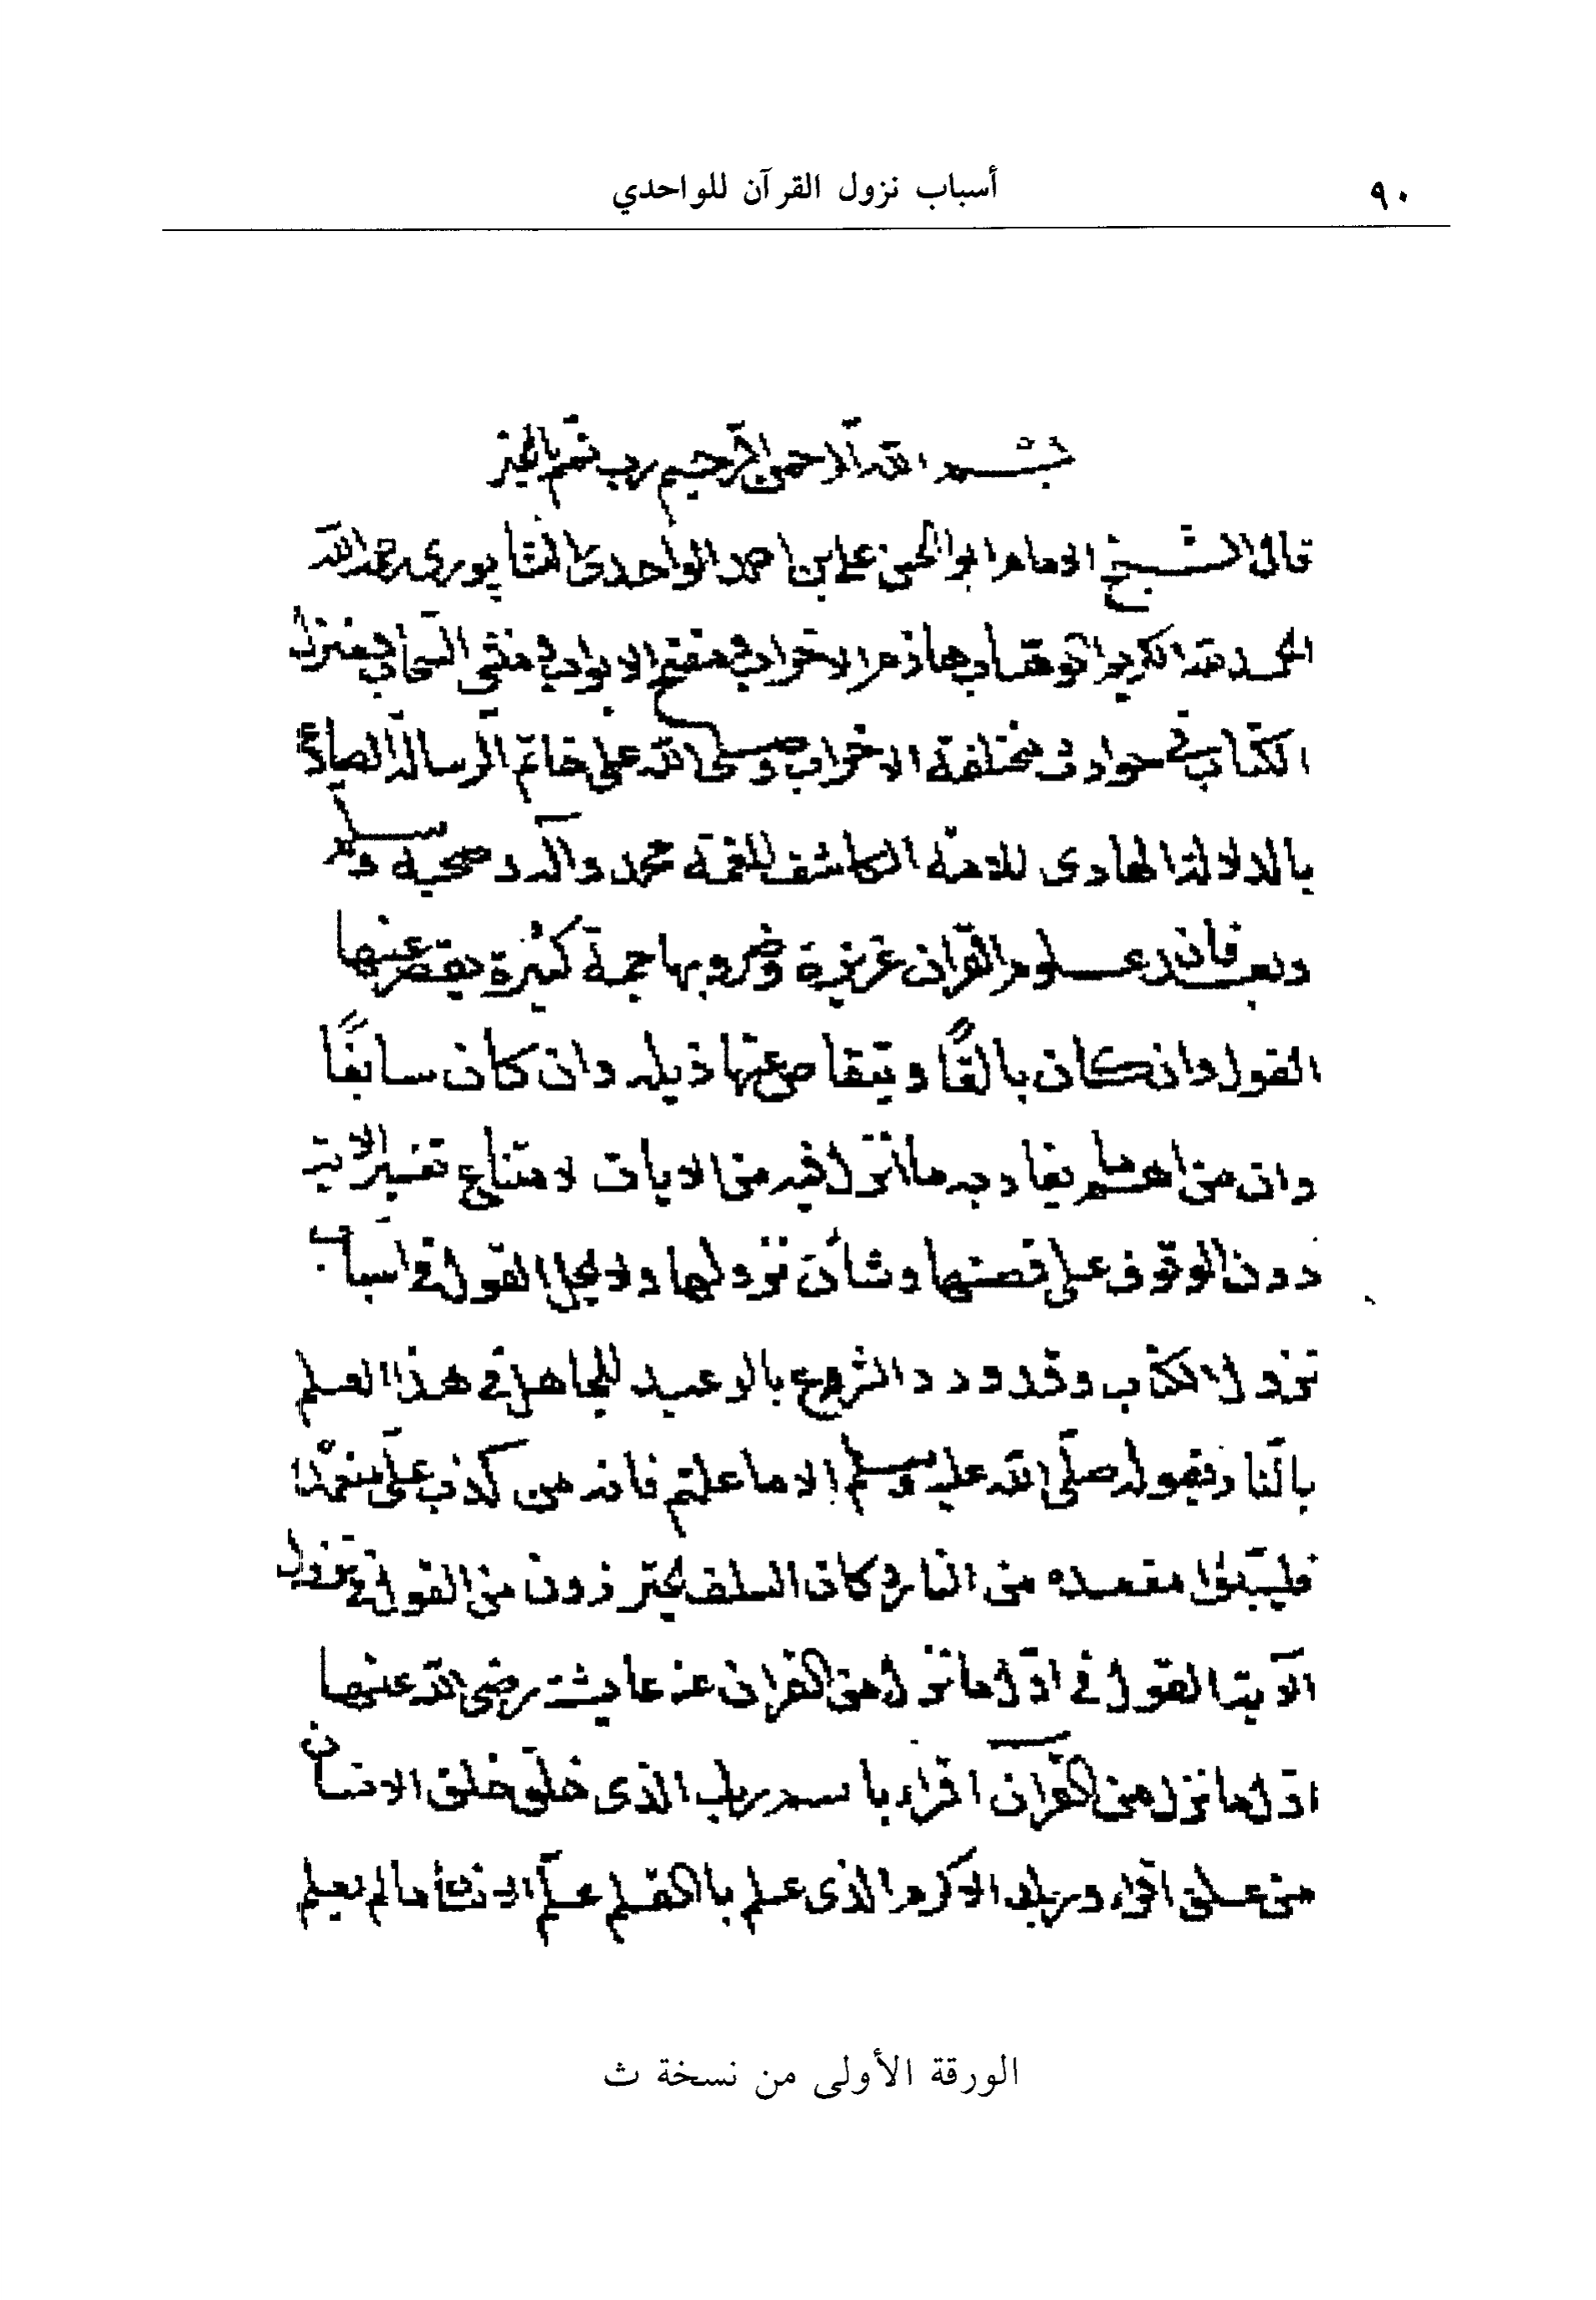 ٩٠
أسباب نزول القرآن للواحدي
بسم الله الرحمن الرحيم رب تمم بالخير
قال الشيخ الامام ابو الحسن علي بن احمد الواحدي النيشابوري رحمه الله
الحمد لله الكريم الوهاب هازم الاحزاب مفتح الابواب منشي السحاب منزل
الكتاب في حوادث مختلفة الاحزاب وصلى الله على خاتم الرسالة الصادع
بالدلالة الهادى للامة الكاشف للغمة محمد وآله وصحبه وسلم
وبعد فان علوم القرآن غزيرة وضروبها جمة كثيرة يقصر عنها
القول وان كان بالغًا ويتقاصر عنها ذيله وان كان سابغًا
وان من اهم ما يعاد به ما انزل فيه من الايات لامتناع تفسير الآية
دون الوقوف على قصتها وشأن نزولها ولا يحل القول في اسباب
نزول الكتاب وقد ورد الشرع بالوعيد للجاهل في هذا العلم
بالنار بقوله صلى الله عليه وسلم الا ما علمتم فانه من كذب على متعمدا
فليتبوا مقعده من النار وكان السلف يحترزون من القول في نزول
الآية القول في اوّل ما نزل من القرآن عن عايشة رضى الله عنها
اوّل ما نزل من القرآن اقراء باسم ربك الذى خلق خلق الانسان
من علق اقراء وربك الاكرم الذى علم بالقلم علّم الانسان ما لم يعلم
الورقة الأولى من نسخة ث